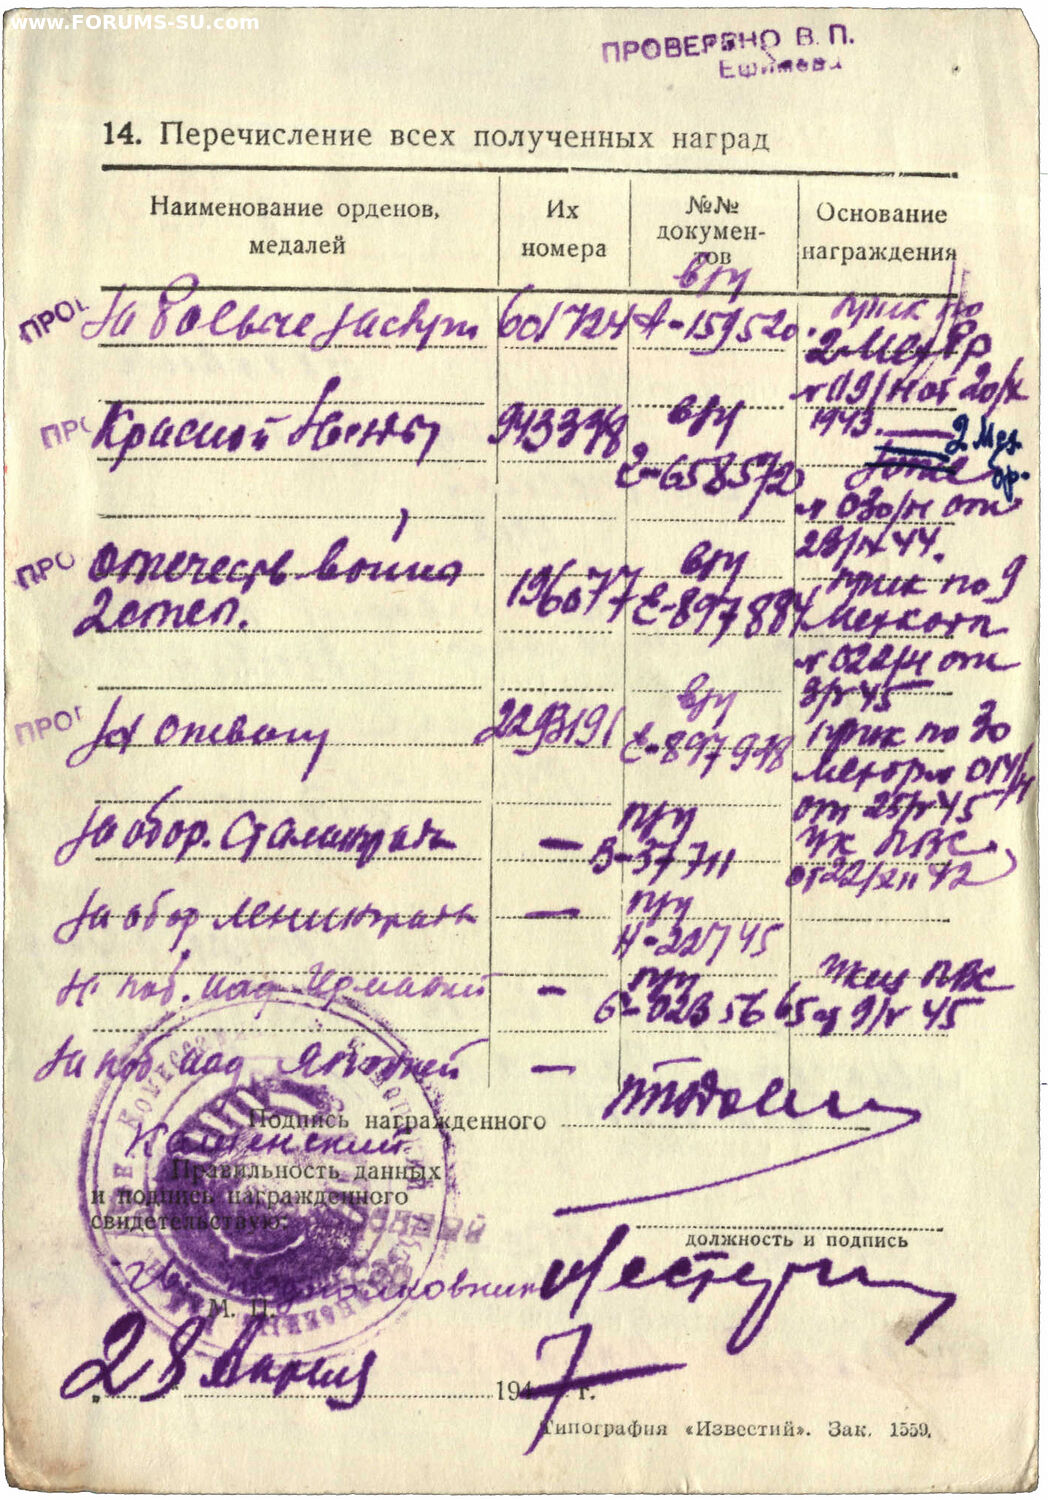 www.FORUMS-SU.com
ПРОВЕРЕНО В. П.
Ефимова
14. Перечисление всех полученных наград
Наименование орденов, медалей
Их номера
№№ документов
Основание награждения
За боевые заслуги 601724 А-159520
2 мех бр
н от 20/X
1943.
Красной Звезды 943398 Е-658572
2 мех. бр.
№ 030/н от
23/IV 44.
Отечеств войны
2 степ. 196077 Е-897884
прик по 9
мехкорп
№ 022/н от
3/IV 45
За отвагу 2293191 Е-897978
прик по 30
014/н
от 25/IV 45
За обор. Сталинграда — В-37711
Ук ПВС
от 22/XII 42
За обор Ленинграда — Н-22745
поб. над Германией — 0235665
ПВС
9/V 45
За поб. над Японией —
Подпись награжденного
Каменский
Правильность данных
и подпись награжденного
свидетельствую:
должность и подпись
подполковник
М. П.
28 Апреля 1947 г.
Типография «Известий». Зак. 1559.